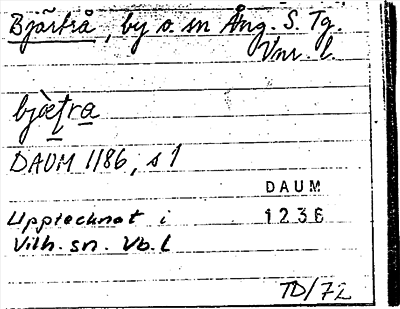 Bjärtrå, by o. sn Ång. S. Tg.
Vnr. l.
bjæ̀ṭra
DAUM 1186, s 1
DAUM
Upptecknat i
1236
Vilh. sn. Vb. l
TD/72